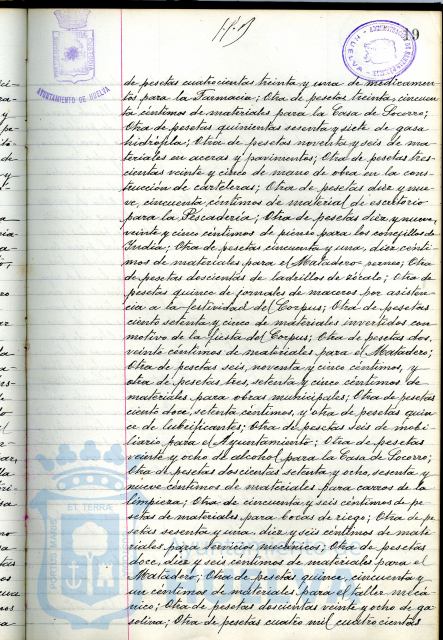 19
AYUNTAMIENTO DE HUELVA
de pesetas cuatrocientas treinta y una de medicamen-
tos para la Farmacia; Otra de pesetas treinta, cincuen-
ta céntimos de materiales para la Casa de Socorro;
Otra de pesetas quinientas sesenta y siete de gasa
hidrófila; Otra de pesetas noventa y seis de ma-
teriales en aceras y pavimentos; Otra de pesetas tres-
cientas veinte y cinco de mano de obra en la cons-
trucción de carteleras; Otra de pesetas diez y nue-
ve, cincuenta céntimos de material de escritorio
para la Pescadería; Otra de pesetas diez y nueve,
veinte y cinco céntimos de pienso para los conejillos de
India; Otra de pesetas cincuenta y una, diez cénti-
mos de materiales para el Matadero; Otra
de pesetas doscientas de ladrillos de zócalo; Otra de
pesetas quince de jornales de maceros por asisten-
cia a la festividad del Corpus; Otra de pesetas
ciento setenta y cinco de materiales invertidos con
motivo de la fiesta del Corpus; Otra de pesetas dos,
veinte céntimos de materiales para el Matadero;
Otra de pesetas seis, noventa y cinco céntimos, y
otra de pesetas tres, setenta y cinco céntimos de
materiales para obras municipales; Otra de pesetas
ciento doce, setenta céntimos, y otra de pesetas quin-
ce de lubrificantes; Otra de pesetas seis de mobi-
liario para el Ayuntamiento; Otra de pesetas
veinte y ocho de alcohol para la Casa de Socorro;
Otra de pesetas doscientas setenta y ocho, sesenta y
nueve céntimos de materiales para carros de la
limpieza; Otra de cincuenta y seis céntimos de pe-
setas de materiales para bocas de riego; Otra de pe-
setas sesenta y una, diez y seis céntimos de mate-
riales para servicio mecánico; Otra de pesetas
doce, diez y seis céntimos de materiales para el
Matadero; Otra de pesetas quince, cincuenta y
un céntimos de materiales para el taller mecá-
nico; Otra de pesetas doscientas veinte y ocho de ga-
solina; Otra de pesetas cuatro mil cuatrocientas
PORTUS MARIS ET TERRAE